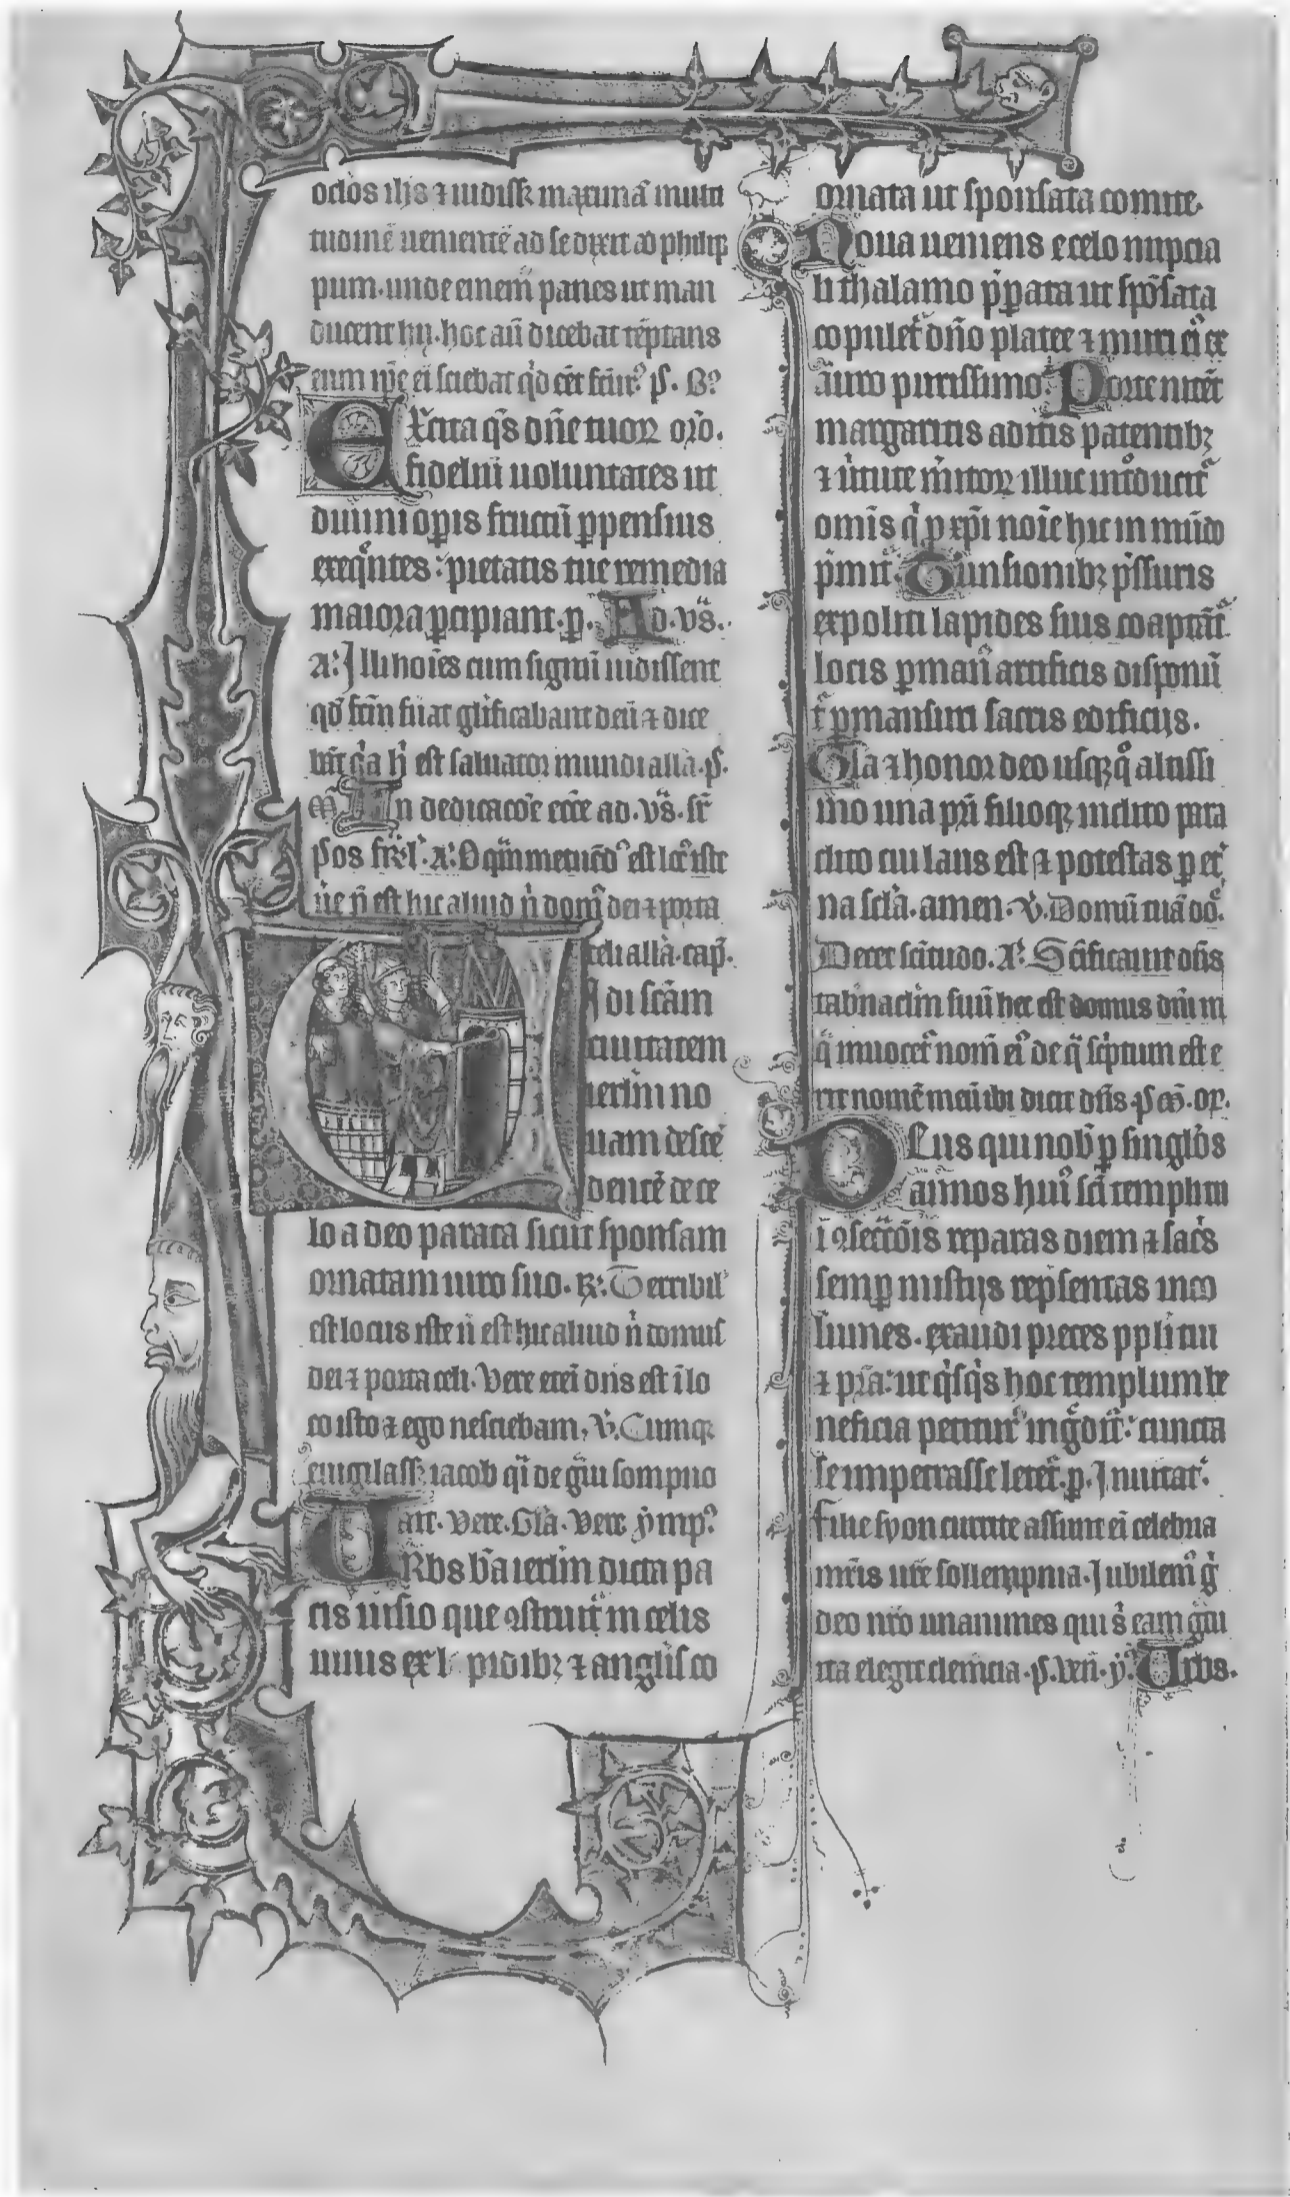 oclos ihs ⁊ uidiss; maximā multi
tudinē uenientē ad se dixit ad philip
pum. unde ememꝰ panes ut man
ducent hij. hoc aū dicebat tēptans
eum ip̄e ei sciebat qd̄ eēt
Excita qs̄ dn̄e tuoꝝ
fideliū uoluntates ut
diuini oꝑis fructū ꝓpensius
exeqn̄tes: pietatis tue remedia
maiora ꝑcipiant. ꝑ. Ad. vs̄.
A. Illi hoīes cum signū uidissent
qd̄ glīficabant deū ⁊ dice
est saluator mundi all̄a. p̄.
In dedicacōe ecc̄e ad. vs̄.
metuēdꝰ est locꝰ iste
ūe n̄ est hic aliud n̄ domꝰ dei ⁊ porta
celi all̄a. cap̄.
Vidi sc̄am
ciuitatem
ierlm̄ no
uam descē
dentē de ce
lo a deo parata sicut sponsam
ornatam uiro suo. R̄. Terribil̄
est locus iste n̄ est hic aliud n̄ domus
dei ⁊ porta celi. Vere eteī dn̄s est ī lo
co isto ⁊ ego nesciebam, V̄. Cumqꝫ
euigilass; iacob qi de gᵃui sompno
ait. Vere. Gl̄a. Vere ymp̄.
Urbs bt̄a ierlm̄ dicta pa
cis uisio que ꝯstruitᷣ in celis
uiuis ex l pidibꝫ ⁊ anglis co
ornata ut sponsata comite.
Noua ueniens e celo nupcia
li thalamo p̄parata ut spōsata
copuletᷣ dn̄o platee ⁊ muri eiꝰ ex
auro purissimo. Porte nitēt
margaritis aditis patentibꝫ
⁊ ūtute m̄itoꝝ illuc intᷣoducitᷣ
omīs qi ꝑ xp̄i noīe hic in mūdo
p̄mitᷣ. Tunsionibꝫ p̄ssuris
expoliti lapides suis coaptātᷣ
locis ꝑ manū artificis disponū
tᷣ ꝑmansuri sacris edificijs.
Gl̄a ⁊ honor deo usqꝫ qͦ altissi
mo una pr̄i filioqꝫ inclito para
clito cui laus est ⁊ potestas ꝑ et̄
na sc̄la. amen. V̄. Domū tuā
Decet sc̄itudo. A. Sc̄ificauit dn̄s
tab̄naclm̄ suū hec est domus dn̄i in
qᵃ inuocetᷣ nom̄ eiꝰ de qᵃ sc̄ptum est e
rit nomē meū ibi dicit dn̄s
Deus qui nob̄ ꝑ singlos
annos huiꝰ sc̄i templi tui
ꝯsecᵃcōis reparas diem ⁊ sac̄s
semꝑ mist̄ijs rep̄sentas inco
lumes. exaudi preces ppl̄i tui
⁊ p̄ta: ut qisqis hoc templum be
neficia petiturꝰ ingᵈitᷣ: cuncta
se impetrasse letetᷣ. ꝑ. Inuitatᷣ.
Filie syon currite assunt eī celebria
mr̄is ur̄e sollempnia. Iubilemꝰ gi
deo nr̄o unanimes qui si eam gᵃtui
ita elegit clem̄cia. p̄. Ven̄. y. Urbs.